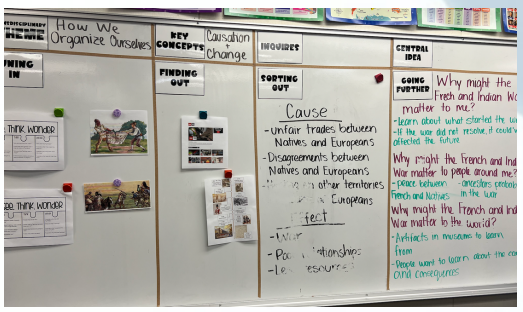 How We
Organize Ourselves
KEY
CONCEPTS
Causation
+
Change
INQUIRES
CENTRAL
IDEA
NING
IN
FINDING
OUT
SORTING
OUT
GOING
FURTHER
Think, Wonder
Think, Wonder
Cause
- unfair trades between
Natives and Europeans
- Disagreements between
Natives and Europeans
other territories
Europeans
ffect
- War
- Po tionships
- Le resources
Why might the
French and Indian Wa
matter to me?
- Learn about what started the wa
- If the war did not resolve, it could
affected the future
Why might the French and Ind
War matter to people around me?
- peace between
French and Natives
- ancestors probabl
in the war
Why might the French and Ind
War matter to the world?
- Artifacts in museums to learn
from
- People want to learn about the
and consequences